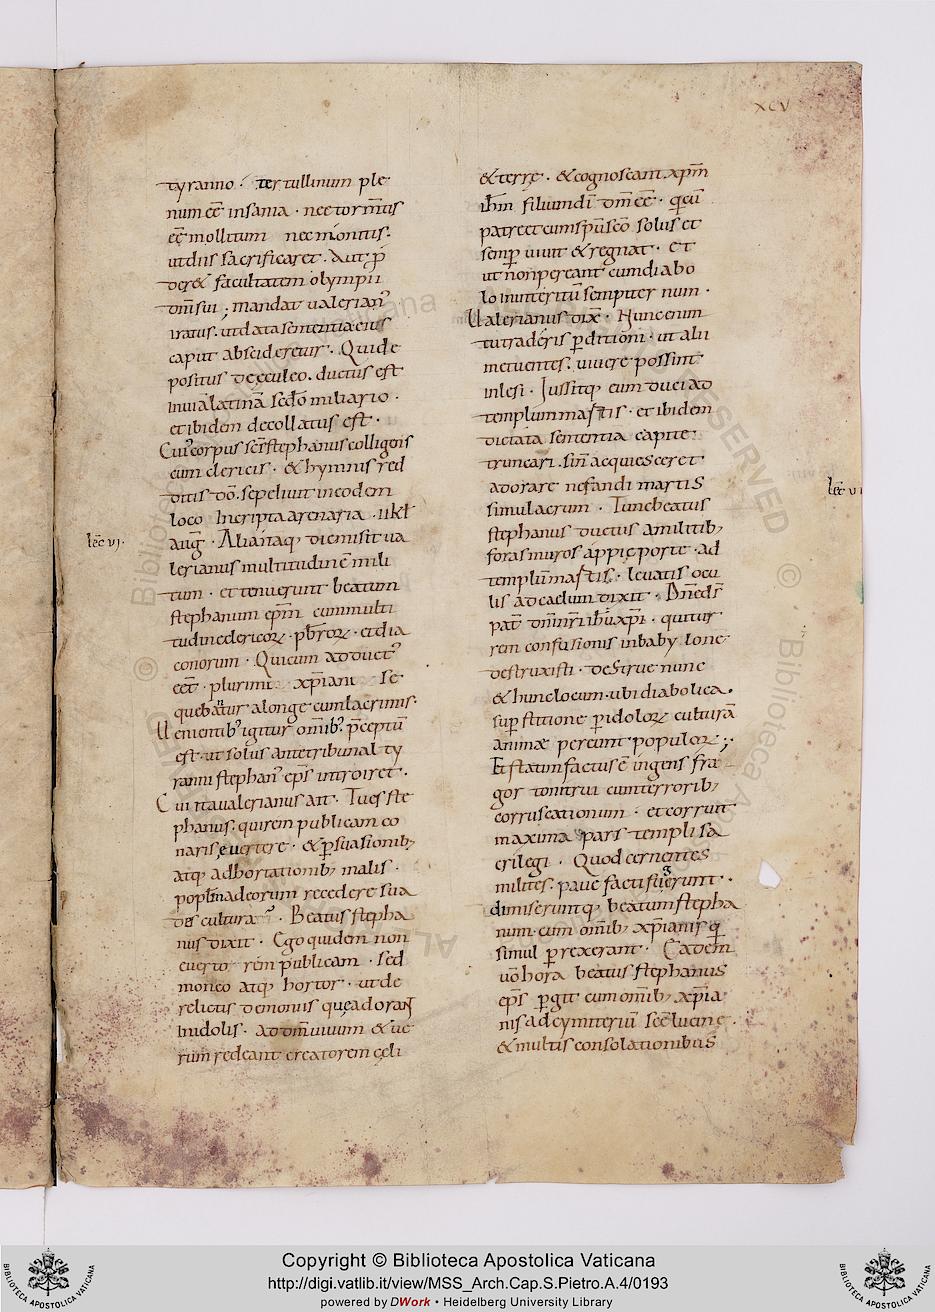 xcv
tyranno. tertullinum ple
num eē insania. nec torm̄tis
eē mollitum nec monitus.
ut diis sacrificaret. Aut p̄
deret facultatem olympii
dn̄i sui; mandat ualerianꝰ
iratus. ut data sententia eius
caput abscideretur. Qui de
positus de eculeo. ductus est
in uia latinā sedō miliario.
et ibidem decollatus est.
Cuiꝰ corpus sc̄s stephanus colligens
cum clericis. & hymnis red
ditis dō. sepeliuit in eodem
loco In cripta arenaria. iikł
lec̄ vi.
aug̅. Alia naq; die misit ua
lerianus multitudinē mili
tum. et tenuerunt beatum
stephanum ep̄m cum multi
tudine clericoꝝ. pb̄roꝝ. et dia
conorum. Qui cum adductꝰ
eēt. plurimi xp̄iani se
quebantur a longe cum lacrimis.
Uenientibꝰ igitur om̄ibꝰ. p̄ceptū
est. ut solus ante tribunal ty
ranni stephanꝰ ep̄s introiret.
Cui ita ualerianus ait. Tu es ste
phanus. qui rem publicam co
naris euertere. & p̱suasionib;
atq; adhortationib; malis.
popłm a deorum recedere sua
des cultura. Beatus stepha
nus dixit. Ego quidem non
euerto rem publicam. sed
moneo atq; hortor. ut de
relictis demoniis que adorant
in idolis. ad dm̄ uiuum & ue
rum redeant creatorem cęli
& terrę. & cognoscant xp̄m
ih̄m filium dī dm̄ eē. qui cū
patre et cum sp̄u sc̄o solus et
semp̱ uiuit & regnat. et
ut n̄ on pereant cum diabo
lo in interitū sempiternum.
Ualerianus dix̄. Hunc enim
tu tradēris p̱ditioni. ut alii
metuentes. uiuere possint
inlesi. Iussitq; eum duci ad
templum martis. et ibidem
dictata sententia capite
truncari. si n̄ acquiesceret
adorare nefandi martis
lec̄ vi
simulacrum. Tunc beatus
stephanus ductus a militib;
foras muros appię portę. ad
templū martis. leuatis ocu
lis ad caelum dixit. Dn̄e ds̄
pat̄ dn̄i nr̄i ih̄u xp̄i. qui tur
rem confusionis in babylone
destruxisti. destrue nunc
& hunc locum. ubi diabolica
sup̱stitione p̱ idoloꝝ culturā
animæ pereunt populoꝝ;
Et statim factus ē ingens fra
gor tonitrui cum terrorib;
corruscationum. et corruit
maxima pars templi sa
crilegi. Quod cernentes
milites. paue facti fugerunt.
dimiseruntq; beatum stepha
num cum om̄ib; xp̄ianis q̄
simul p̱rexerant. Eadem
uō hora beatus stephanus
ep̄s p̱git cum om̄ib; xp̄ia
nis ad cymiteriū sc̄e lucine.
& multis consolationibus
Copyright © Biblioteca Apostolica Vaticana
http://digi.vatlib.it/view/MSS_Arch.Cap.S.Pietro.A.4/0193
powered by DWork • Heidelberg University Library